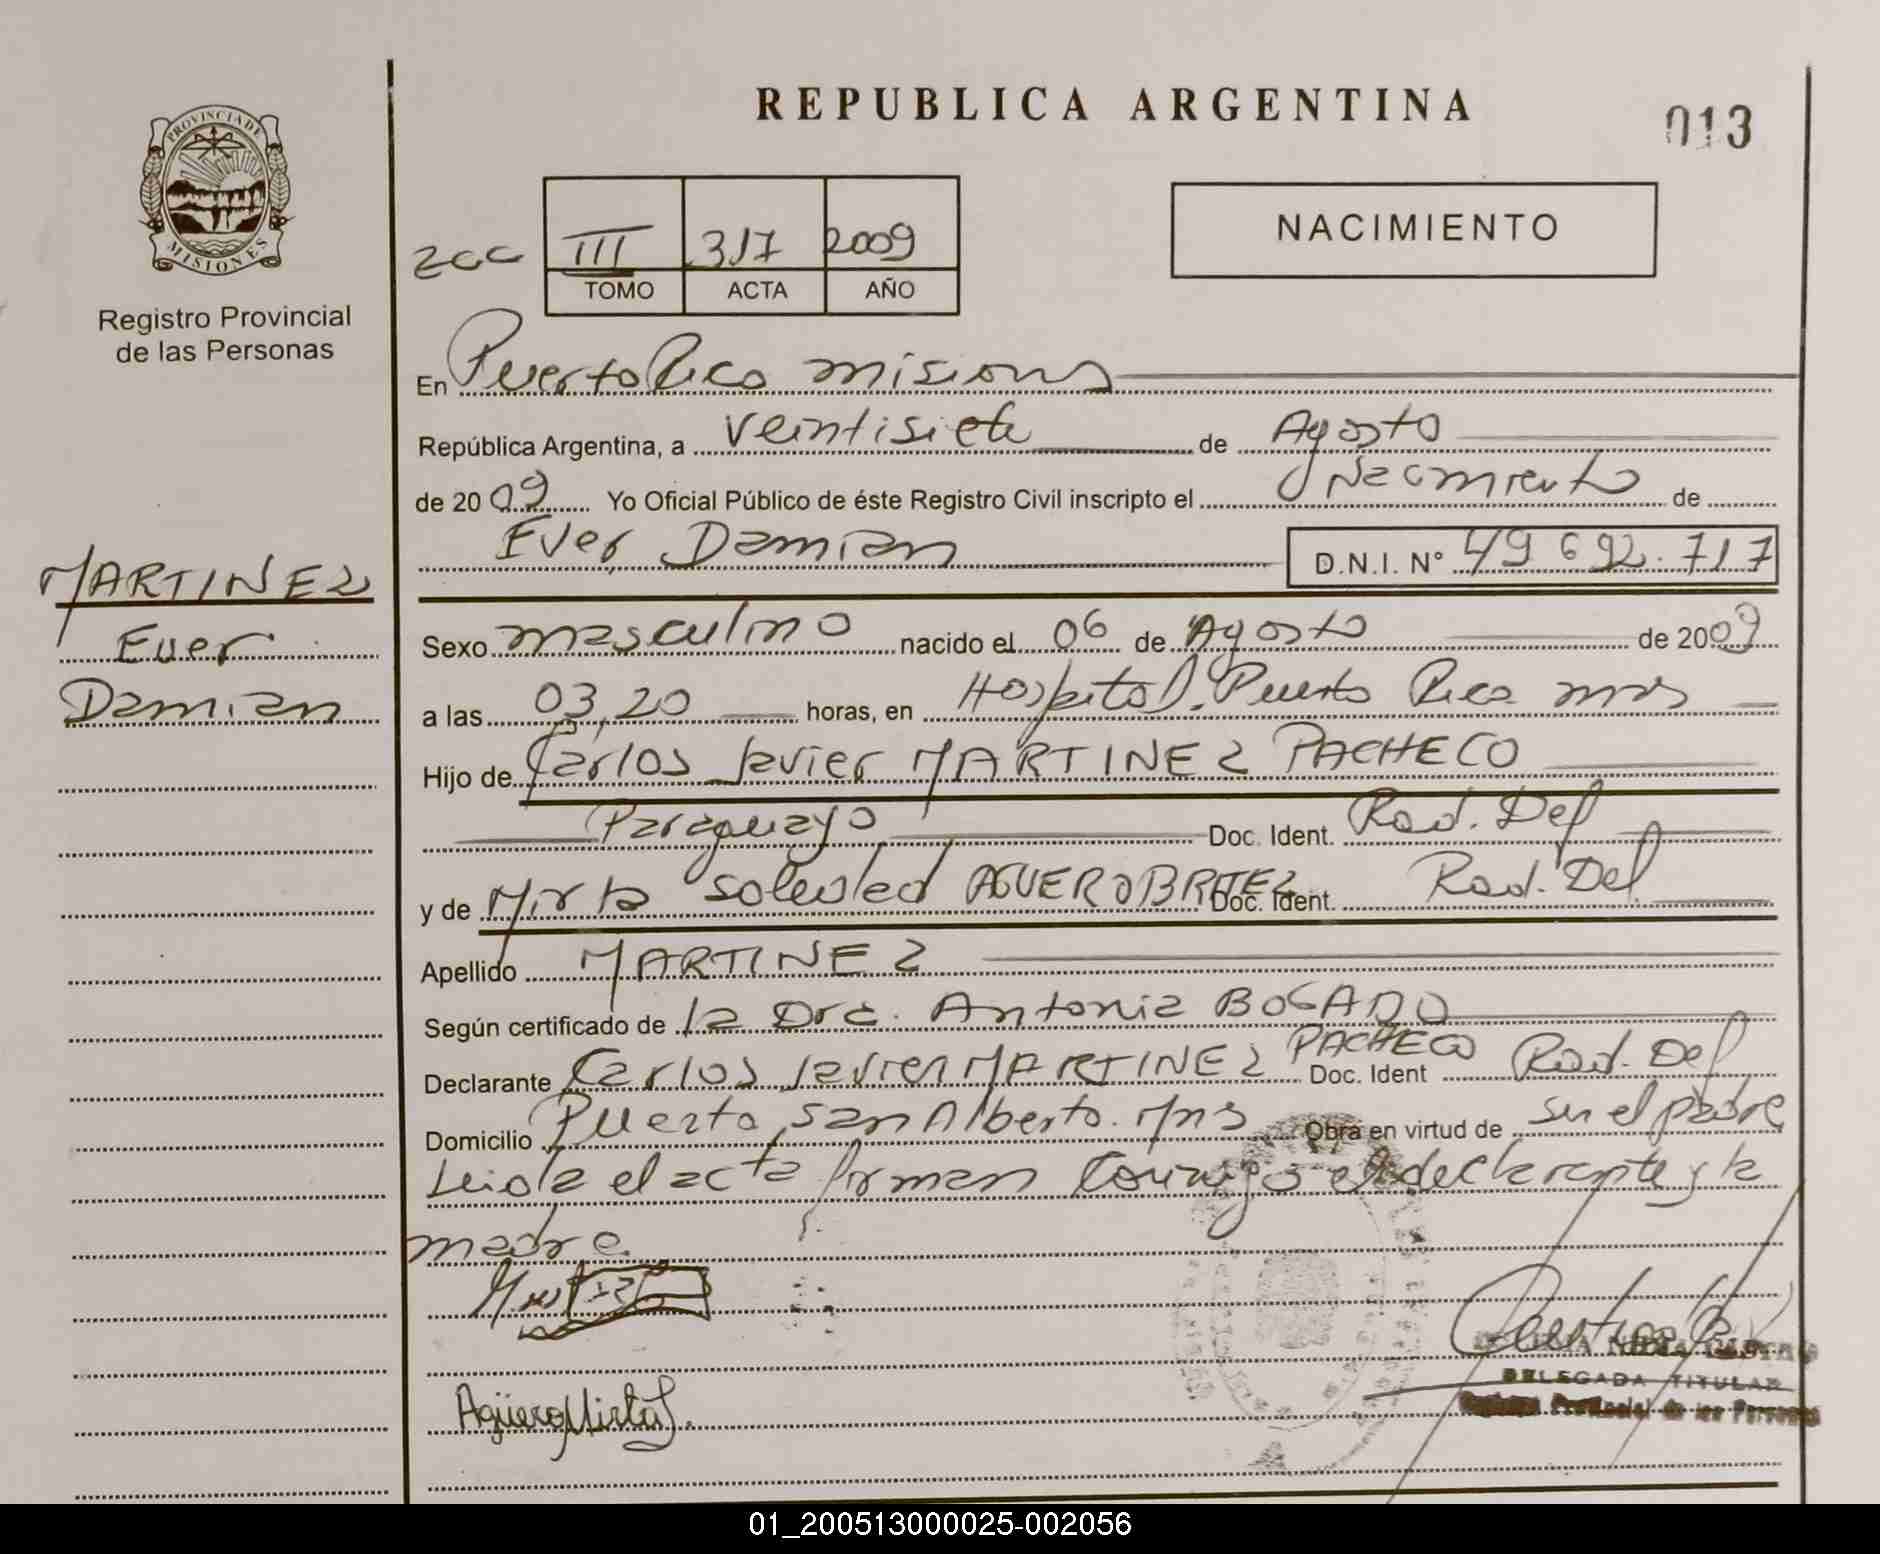 REPUBLICA ARGENTINA
013
PROVINCIA DE
MISIONES
Registro Provincial
de las Personas
NACIMIENTO
III 317 2009
TOMO ACTA AÑO
En Puerto Rico misiones
República Argentina, a veintisiete de Agosto
de 2009 Yo Oficial Público de éste Registro Civil inscripto el Nacimiento de
Ever Damian D.N.I. N° 49 692.717
MARTINEZ
Ever
Damian
Sexo masculino nacido el 06 de Agosto de 2009
a las 03,20 horas, en Hospital. Puerto Rico mns
Hijo de Carlos Javier MARTINEZ PACHECO
Paraguayo Doc. Ident. Rad. Def
y de Mirta Soledad AGUERO BRITEZ Doc. Ident. Rad. Def
Apellido MARTINEZ
Según certificado de la Dra. Antonia BOGADO
Declarante Carlos Javier MARTINEZ PACHECO Doc. Ident Rad. Def
Domicilio Puerto San Alberto. Mns Obra en virtud de ser el padre
Leida el acta firman conmigo el declarante y la
madre
DELEGADA TITULAR
Registro Provincial de las Personas
Agüero Mirta S.
01_200513000025-002056